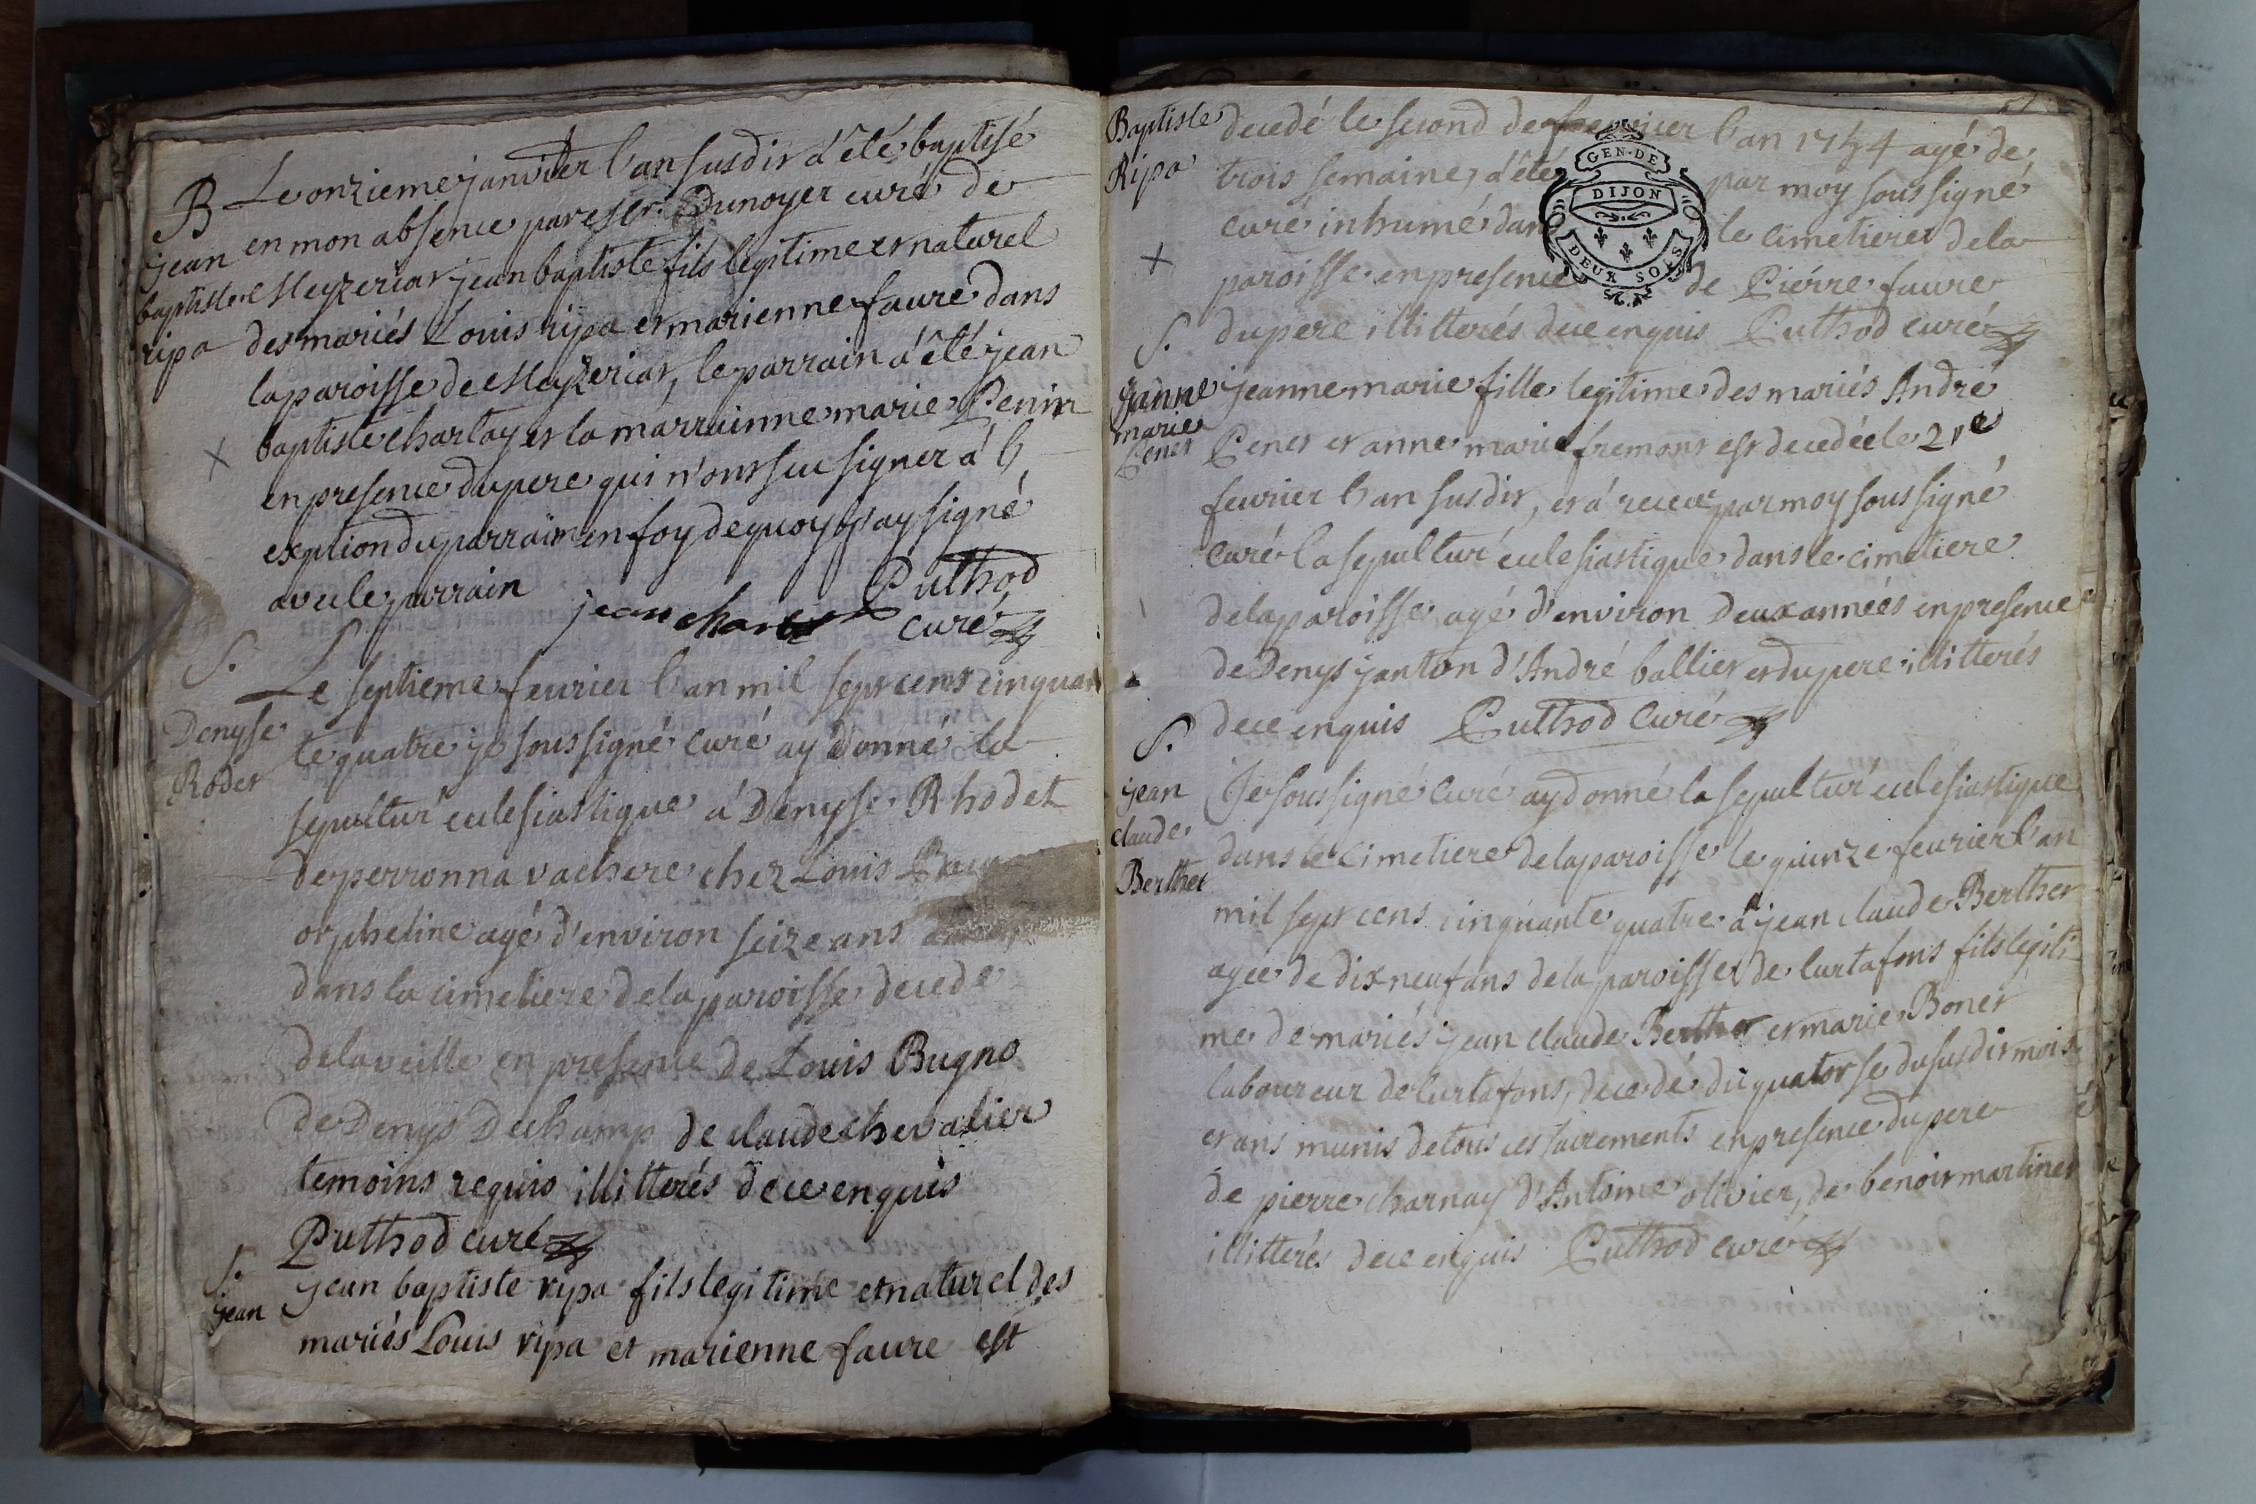 B
jean
baptiste
ripa
Le onzieme janvier l'an susdit a été baptisé
en mon absence par Dunoyer curé de
Meyzeriat jean baptiste fils legitime et naturel
des mariés Louis ripa et marienne faure dans
la paroisse de Meyzeriat, le parrain a été jean
baptiste charlay et la marrainne marie Penin
en presence du pere qui n'ont scu signer á l'
exption du parrain en foy de quoy j'ay signé
avec le parrain jean Puthod
curé
S.
Denyse
Rodet
Le septieme fevrier l'an mil sept cent cinquan
te quatre je soussigné curé ay donné la
sepultur eclesiastique á Denyse Rhodet
de perronna vachere chez Louis
orpheline agé d'environ seize ans
dans la cimetiere de la paroisse decede
de la veille en presence de Louis Bugno
de Denys Dechamp de claude chevalier
temoins requis illitterés de ce enquis
Puthod curé
S.
jean
jean baptiste ripa fils legitime et naturel des
mariés Louis ripa et marienne faure est
Baptiste
Ripa
decedé le second de fevrier l'an 1754 agé de
trois semaine, a été par moy soussigné
curé inhumé dans le cimetiere de la
paroisse en presence de Piérre faure
du pere illitterés de ce enquis Puthod curé
GEN·DE
DIJON
DEUX SOLS
S.
Janne
marie
Penet
jeanne marie fille legitime des mariés André
Penet et anne marie fremont est decedée le 21e
fevrier l'an susdit, et á receu par moy soussigné
curé la sepultur eclesiastique dans le cimetiere
de la paroisse agé d'environ Deux années en presence
de Denys janton d'André ballier et du pere illitterés
de ce enquis Puthod curé
S.
jean
claude
Berthet
Je soussigné curé ay donné la sepultur eclesiastique
dans le cimetiere de la paroisse le quinze fevrier l'an
mil sept cens cinquante quatre á jean claude Berthet
agee de dix neuf ans de la paroisse de Curtafons fils legiti
me de mariés jean claude Berthet et marie Bonet
laboureur de Curtafons, decedé du quatorse du susdit mois
et ans munis de tous ces sacrements en presence du pere
de pierre charnay d'Antoine olivier, de benoit martinet
illitterés de ce enquis Puthod curé